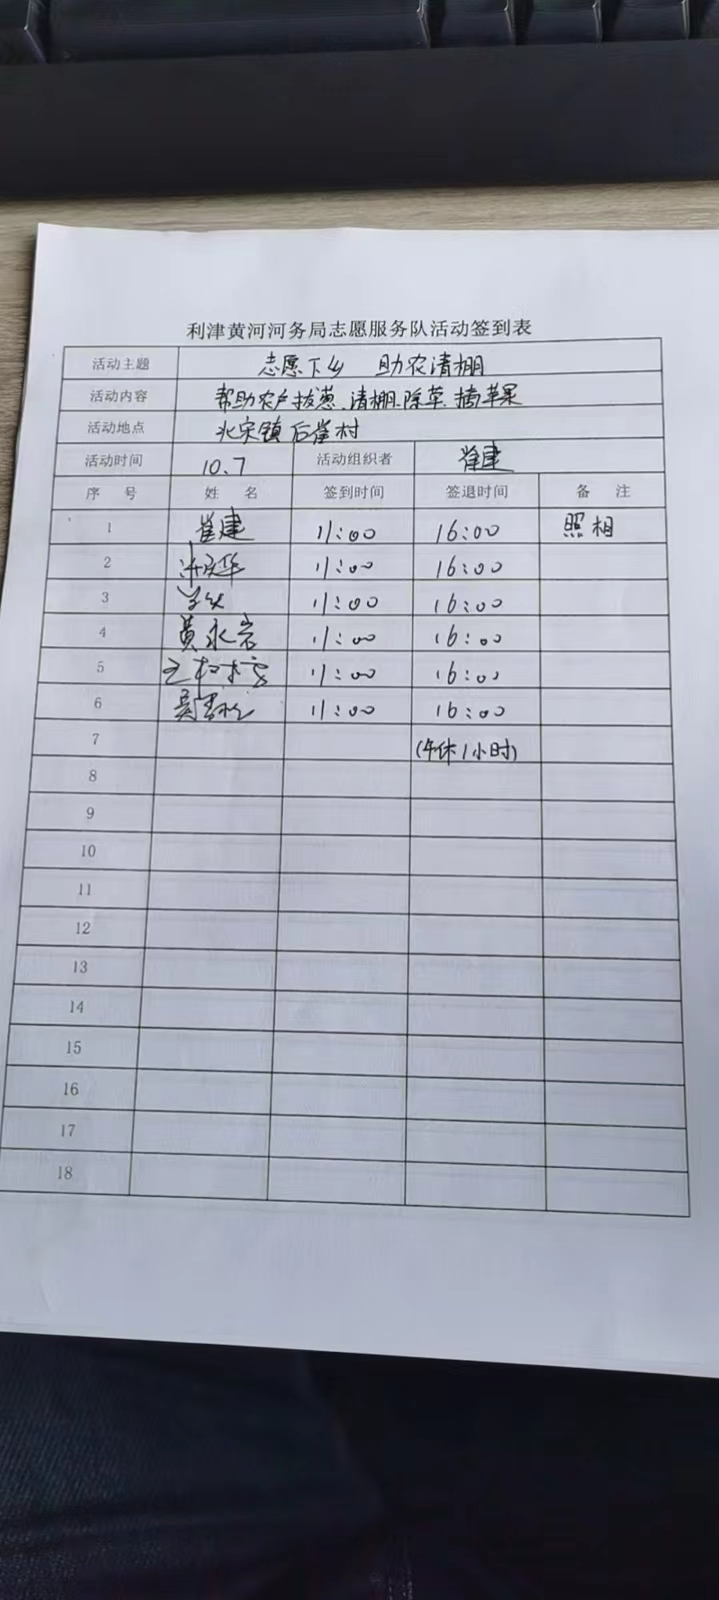 利津黄河河务局志愿服务队活动签到表
活动主题 志愿下乡 助农清棚
活动内容 帮助农户拔葱、清棚、除草、摘苹果
活动地点 北宋镇后崔村
活动时间 10.7 活动组织者 崔建
序号 姓名 签到时间 签退时间 备注
1 崔建 11:00 16:00 照相
2 11:00 16:00
3 11:00 16:00
4 黄永岩 11:00 16:00
5 11:00 16:00
6 11:00 16:00
7 (午休1小时)
8
9
10
11
12
13
14
15
16
17
18